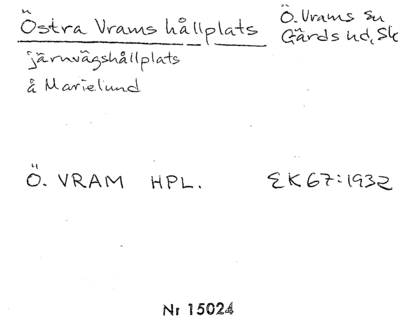 Östra Vrams hållplats
Ö. Vrams sn
Gärds hd, Sk
järnvägshållplats
å Marielund
Ö. VRAM HPL.
EK67:1932
Nr 15024